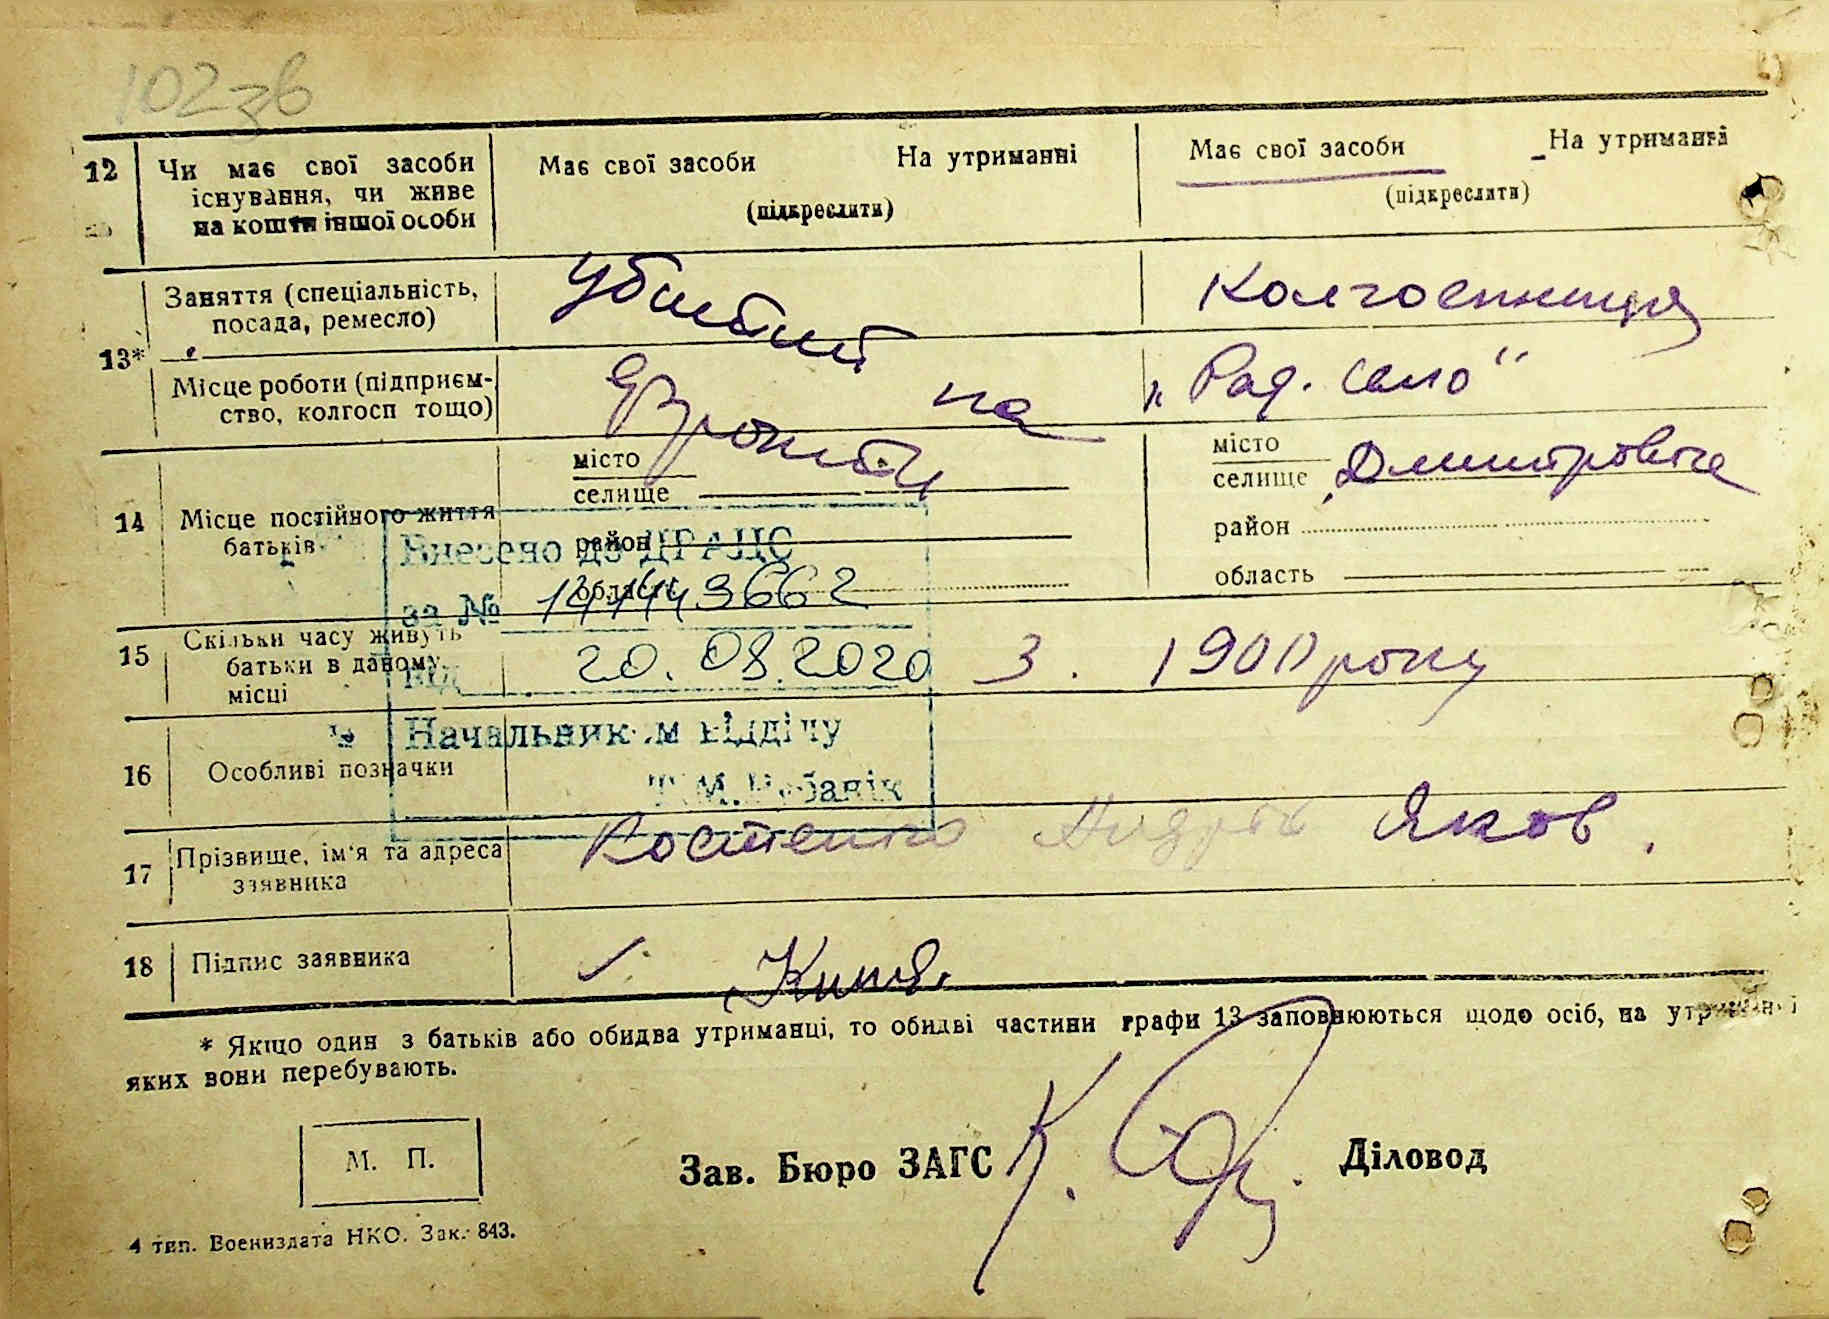 102зв
12 Чи має свої засоби існування, чи живе на кошти іншої особи
Має свої засоби На утриманні
(підкреслити)
Має свої засоби На утриманні
(підкреслити)
13* Заняття (спеціальність, посада, ремесло)
убитий
Колгоспниця
Місце роботи (підприємство, колгосп тощо)
на Фронті
„Рад. село"
14 Місце постійного життя батьків
місто
селище
район
область
місто
селище Дмитровіче
район
область
15 Скільки часу живуть батьки в даному місці
З. 1900 року
16 Особливі позначки
Внесено до ДРАЦС
за №
від 20.08.2020
Начальником відділу
17 Прізвище, ім'я та адреса заявника
Костенко Андрій Яков.
18 Підпис заявника
* Якщо один з батьків або обидва утриманці, то обидві частини графи 13 заповнюються щодо осіб, на утриманні
яких вони перебувають.
М. П.
Зав. Бюро ЗАГС Діловод
4 тип. Воениздата НКО. Зак. 843.